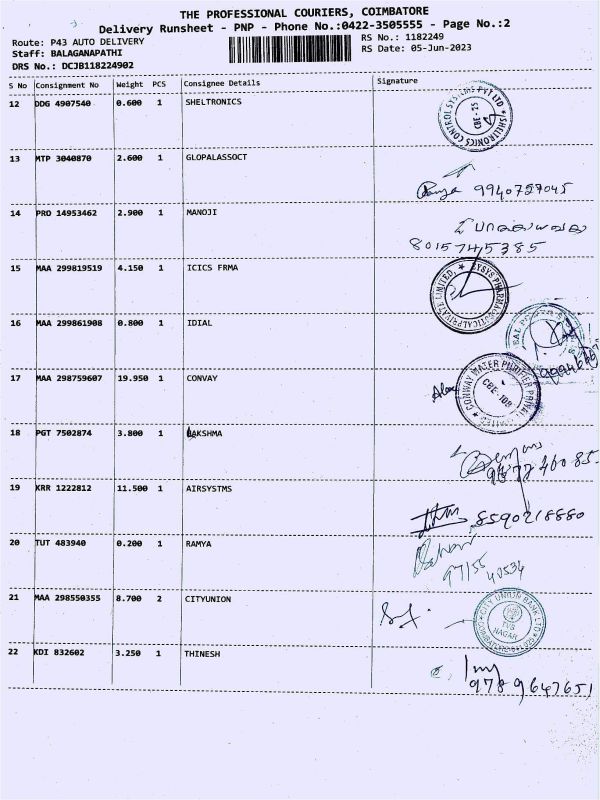 THE PROFESSIONAL COURIERS, COIMBATORE
Delivery Runsheet - PNP - Phone No.:0422-3505555 - Page No.:2
Route: P43 AUTO DELIVERY
RS No.: 1182249
Staff: BALAGANAPATHI
RS Date: 05-Jun-2023
DRS No.: DCJB118224902
S No Consignment No Weight PCS Consignee Details Signature
12 DDG 4907540 0.600 1 SHELTRONICS
13 MTP 3040870 2.600 1 GLOPALASSOCT
9940727045
14 PRO 14953462 2.900 1 MANOJI
8015745385
15 MAA 299819519 4.150 1 ICICS FRMA
16 MAA 299861908 0.800 1 IDIAL
17 MAA 298759607 19.950 1 CONVAY
CONWAY WATER PURIFIER PRIVATE LIMITED
CBE-109
18 PGT 7502874 3.800 1 LAKSHMA
19 KRR 1222812 11.500 1 AIRSYSTMS
8590218880
20 TUT 483940 0.200 1 RAMYA
97155
40534
21 MAA 298550355 8.700 2 CITYUNION
CITY UNION BANK LTD
TVS
NAGAR
22 KDI 832602 3.250 1 THINESH
9789647651